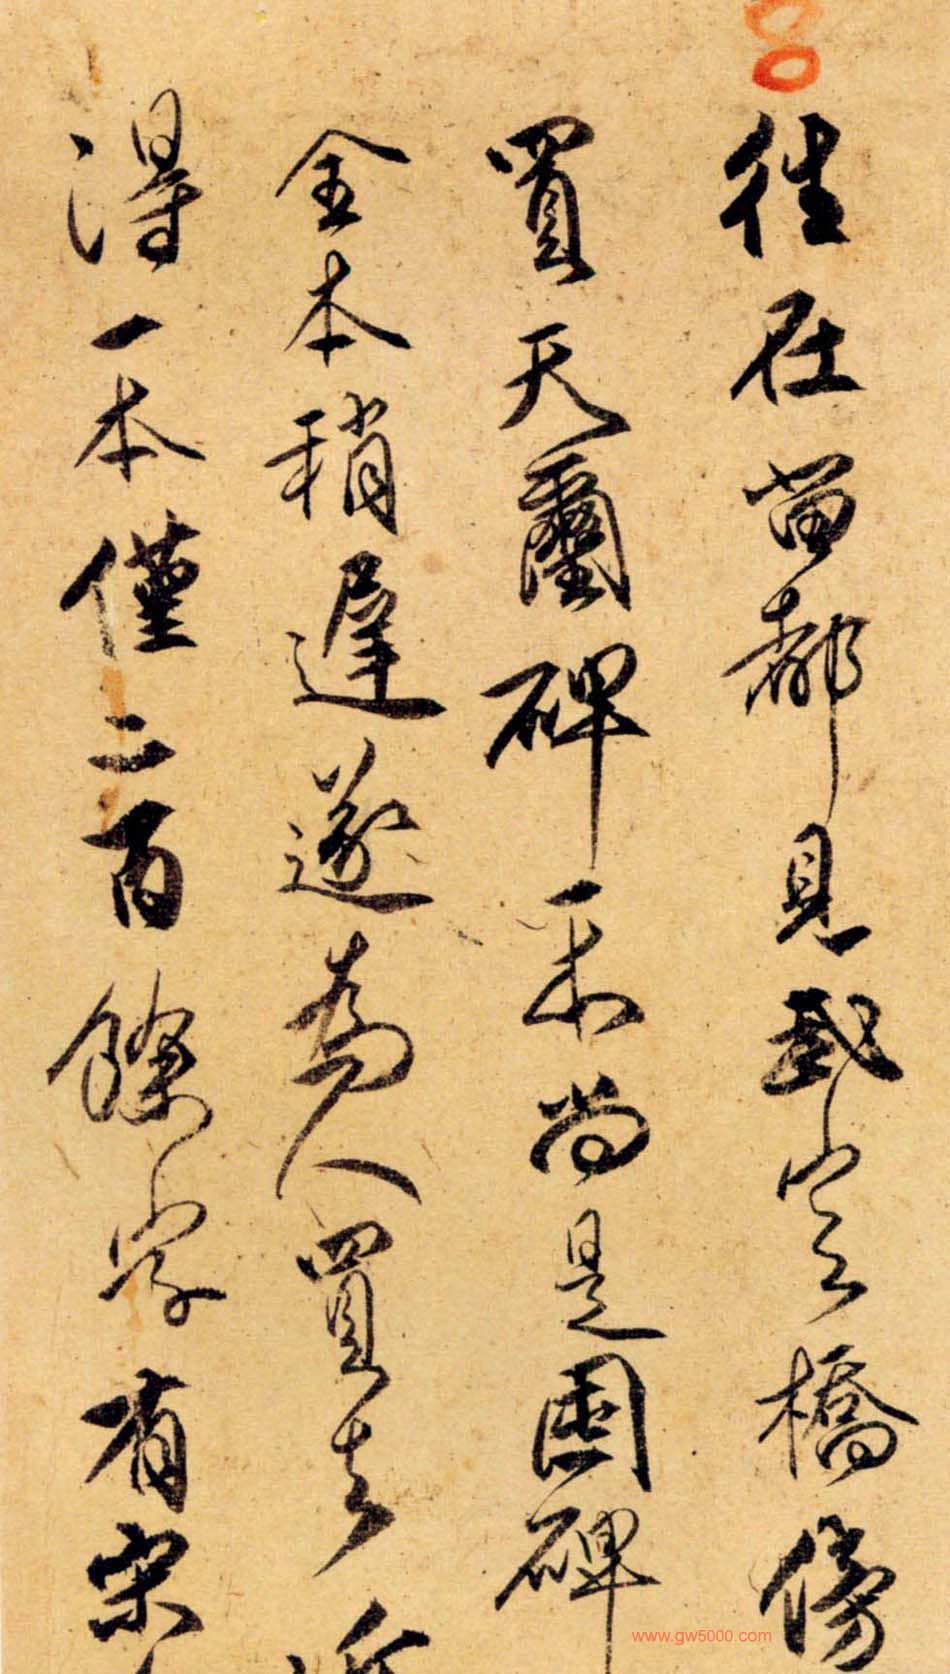 往在留都見武定橋傍
買天璽碑一本尚是團碑
全本稍遲遂為人買去近
得一本僅二百餘字有宋
www.gw5000.com